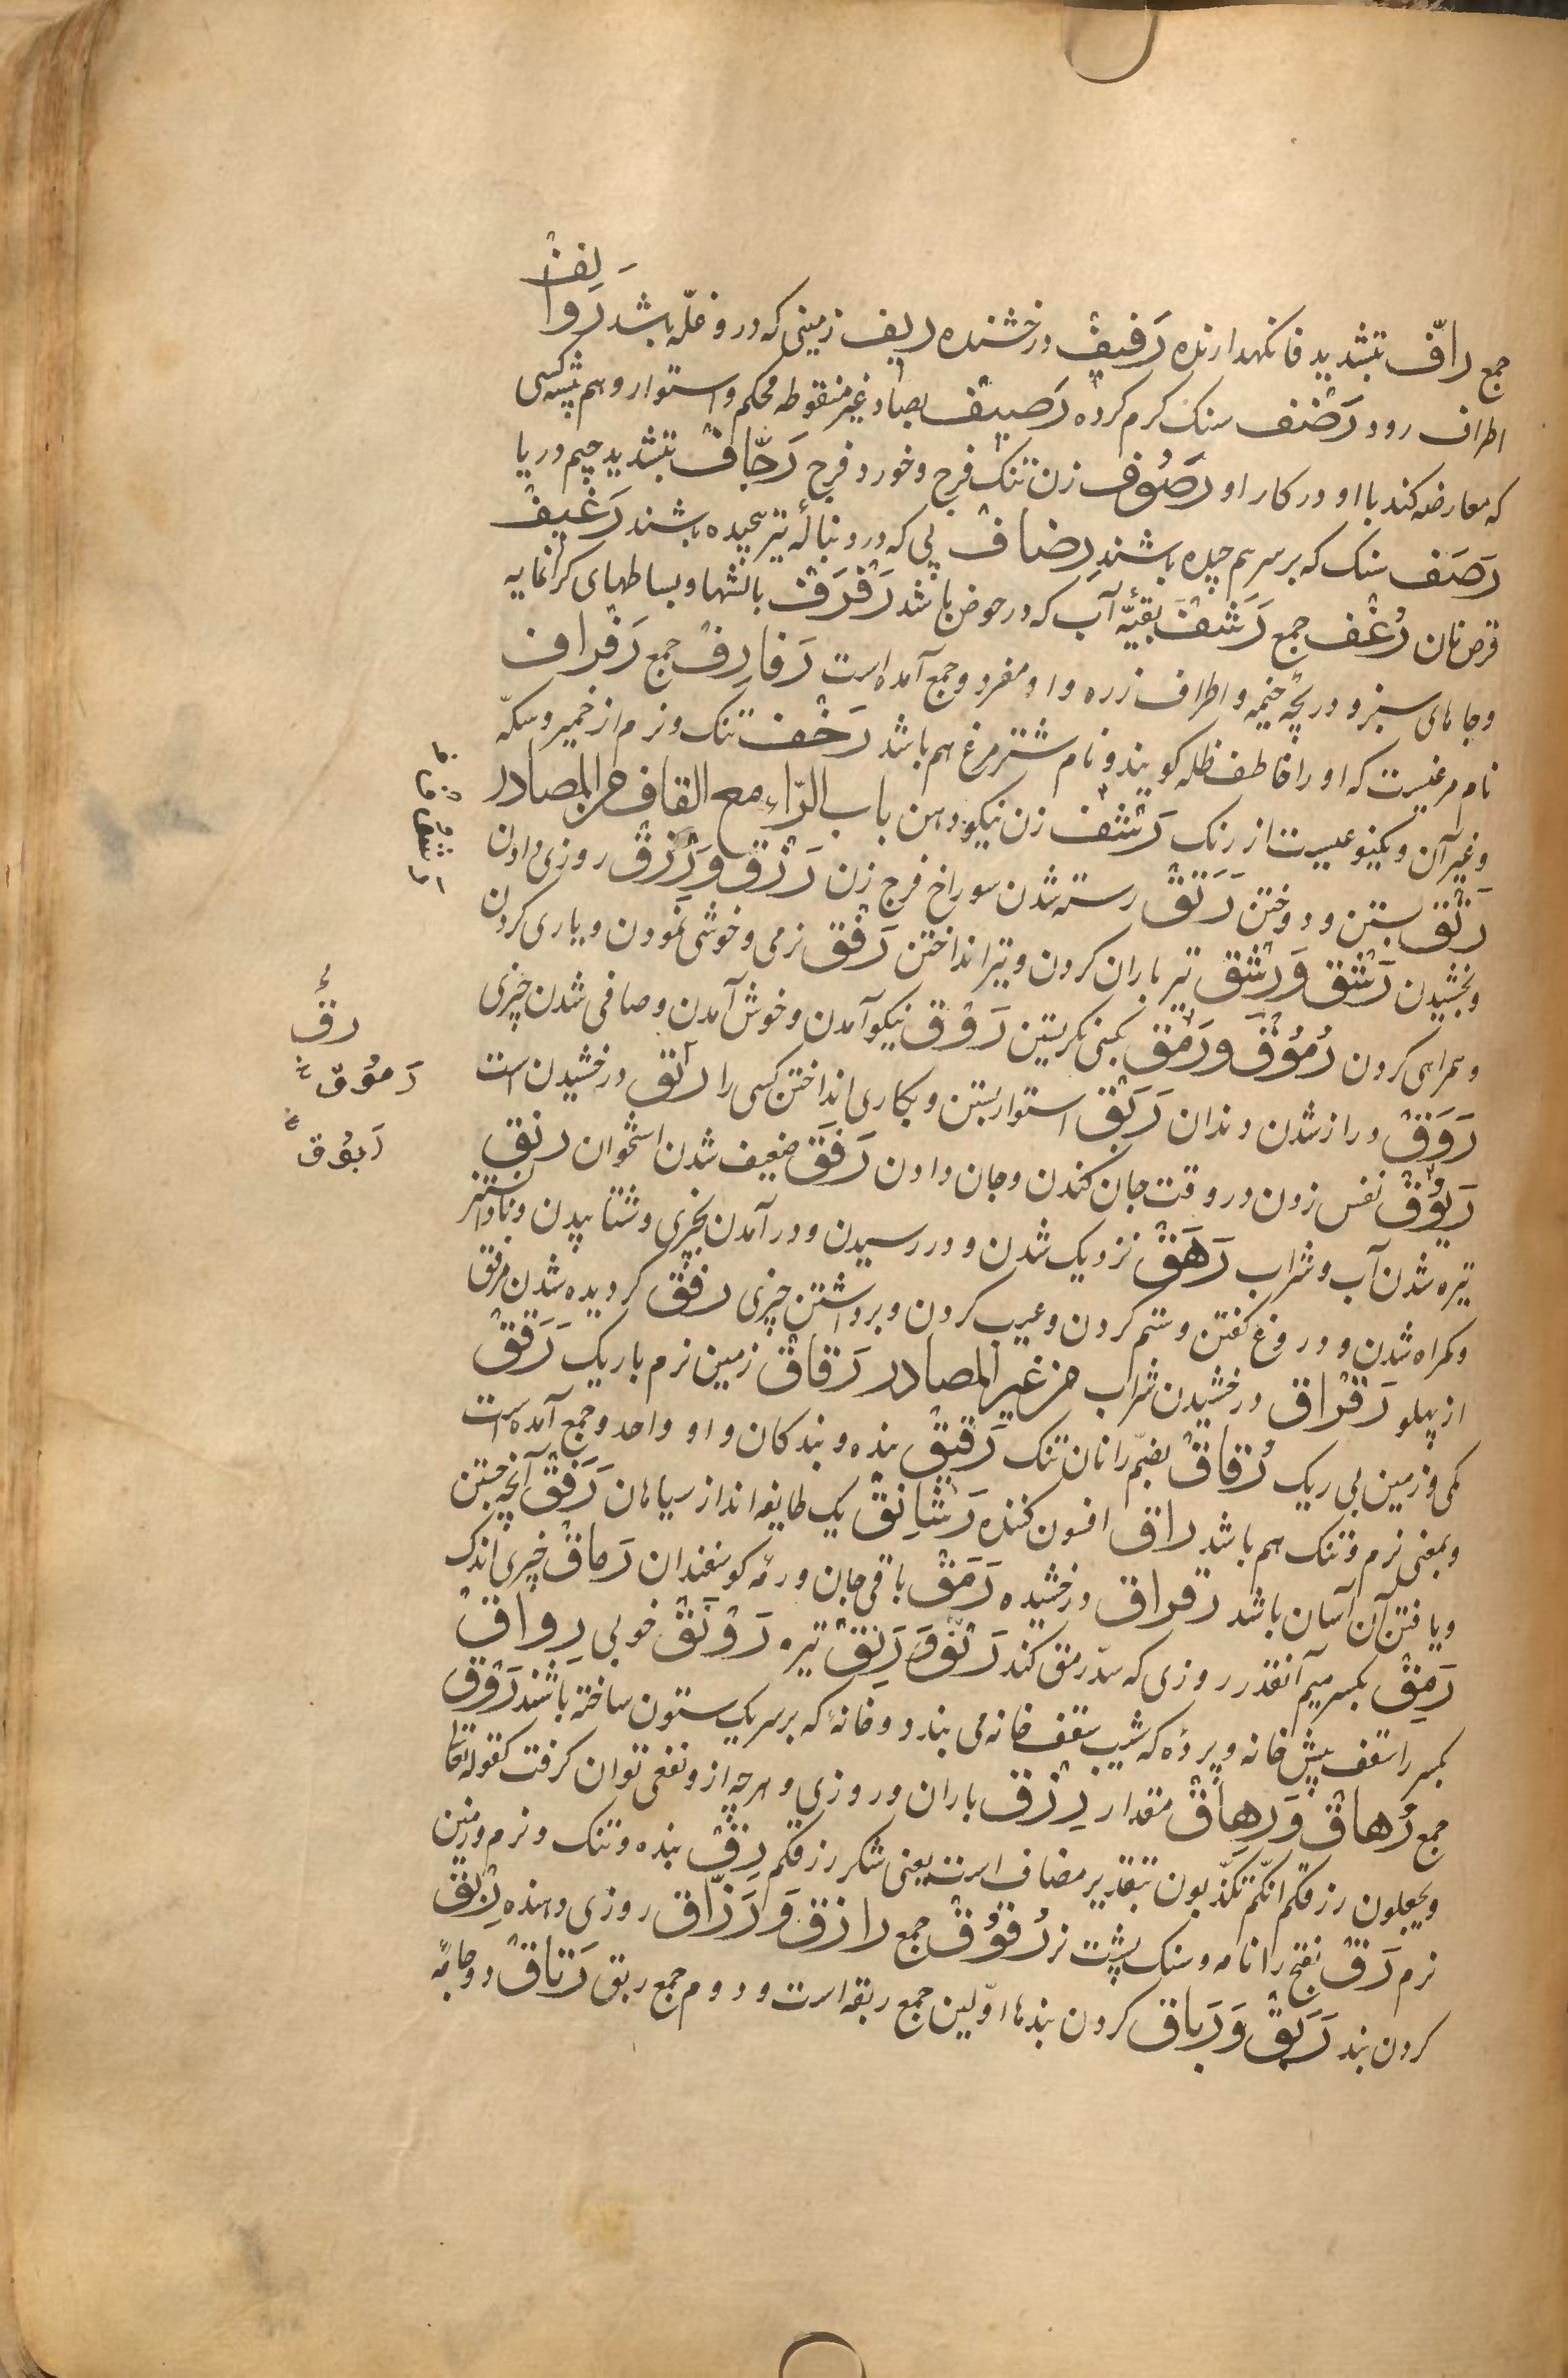 جمع رافّ بتشدید فا نکهدارنده رَفیفْ درخشنده ریف زمینی که درو غلّه باشد رَوَالِفْ
اطراف رود رَضْف سنک کرم کرده رَصیف بصاد غیر منقوطه محکم و استوار و هم پیشه کسی
که معارضه کند با او در کار او رَصُوف زن تنک فرج و خورد فرج رَجّافْ بتشدید جیم دریا
رَصَف سنک که بر سر هم چیده باشند رِضافْ پی که در دنبالهٔ تیر پیچیده باشند رَغیفْ
قرص نان رُغْف جمع رَشَفْ بقیّه آب که در حوض باشد رَفْرَفْ بالشها و بساطهای کرانمایه
و جامهای سبز و دریچه خیمه و اطراف زره و او مفرد و جمع آمده است رَفارِفْ جمع رَفراف
نام مرغیست که او را خاطف ظله کویند و نام شتر مرغ هم باشد رَخْف تنک و نرم از خمیر و مسکه
و غیر آن و یکنوعیست از رنک رَشْف زن نیکو دهن باب الرّاء مع القاف من المصادر
رَتْق بستن و دوختن رَتَقْ رسته شدن سوراخ فرج زن رَزْق وَرِزْقْ روزی دادن
و بخشیدن رَشْق وَرِشْق تیر باران کردن و تیر انداختن رَفْق نرمی و خوشی نمودن و یاری کردن
و همراهی کردن رُمُوْق وَرَمْق بکنی نکریستن رَوْق نیکو آمدن و خوش آمدن و صافی شدن چیزی
رَوَقْ دراز شدن دندان رَبْق استوار بستن و بکاری انداختن کسی را رَئْق درخشیدن است
رَیُوْقْ نفس زدن در وقت جان کندن و جان دادن رَقَق ضعیف شدن استخوان رنق
تیره شدن آب و شراب رَهَقْ نزدیک شدن و در رسیدن و در آمدن بچیزی و شتابیدن و نادانستن
و کمراه شدن و دروغ کفتن و ستم کردن و عیب کردن و برداشتن چیزی رَفَقْ کردیده شدن مرفق
از پهلو رَقْراق درخشیدن شراب من غیر المصادر رَقاقْ زمین نرم باریک رَقَقْ
کمی و زمین بی ریک رُقاقْ بضمّ را نان تنک رَقیقْ بنده و بندکان و او واحد و جمع آمده است
و بمعنی نرم و تنک هم باشد راق افسون کننده رَشانِقْ یک طایفه اند از سپاهان رَفَقْ آنچه جستن
و یافتن آن آسان باشد رقراق درخشیده رَمَقْ باقی جان و رمه کوسفندان رَماقْ چیزی اندک
رَمِقْ بکسر میم آنقدر روزی که سدّ رمق کند رَنْق وَ رَنِقْ تیره رَوْنَقْ خوبی رِواقْ
بکسر را سقف پیش خانه و پردهٔ که شیب سقف خانه می بندد و خانهٔ که بر سر یک ستون ساخته باشند رَوْق
جمع رُهاقْ وَرِهاقْ مقدار رِزْق باران و روزی و هرچه ازو نفعی توان کرفت کقوله تعا
و تجعلون رزقکم انّکم تکذّبون بتقدیر مضاف است یعنی شکر رزقکم رِقّ بنده و تنک و نرم و زمین
نرم رَقّ بفتح را نامه و سنک پشت نر رُقوُقْ جمع رازق وَ رَزّاق روزی دهنده رِبْقْ
کردن بند رَبَقْ وَرِباق کردن بندها اوّلین جمع ربقه است و دوم جمع ربق رَتاقْ دو جامهٔ
رقْ
رَموُق
رَبوُق